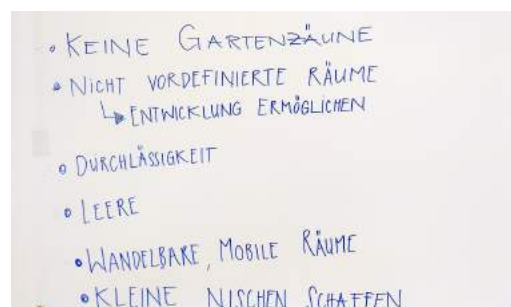 • KEINE GARTENZÄUNE
• NICHT VORDEFINIERTE RÄUME
↳ ENTWICKLUNG ERMÖGLICHEN
• DURCHLÄSSIGKEIT
• LEERE
• WANDELBARE, MOBILE RÄUME
• KLEINE NISCHEN SCHAFFEN